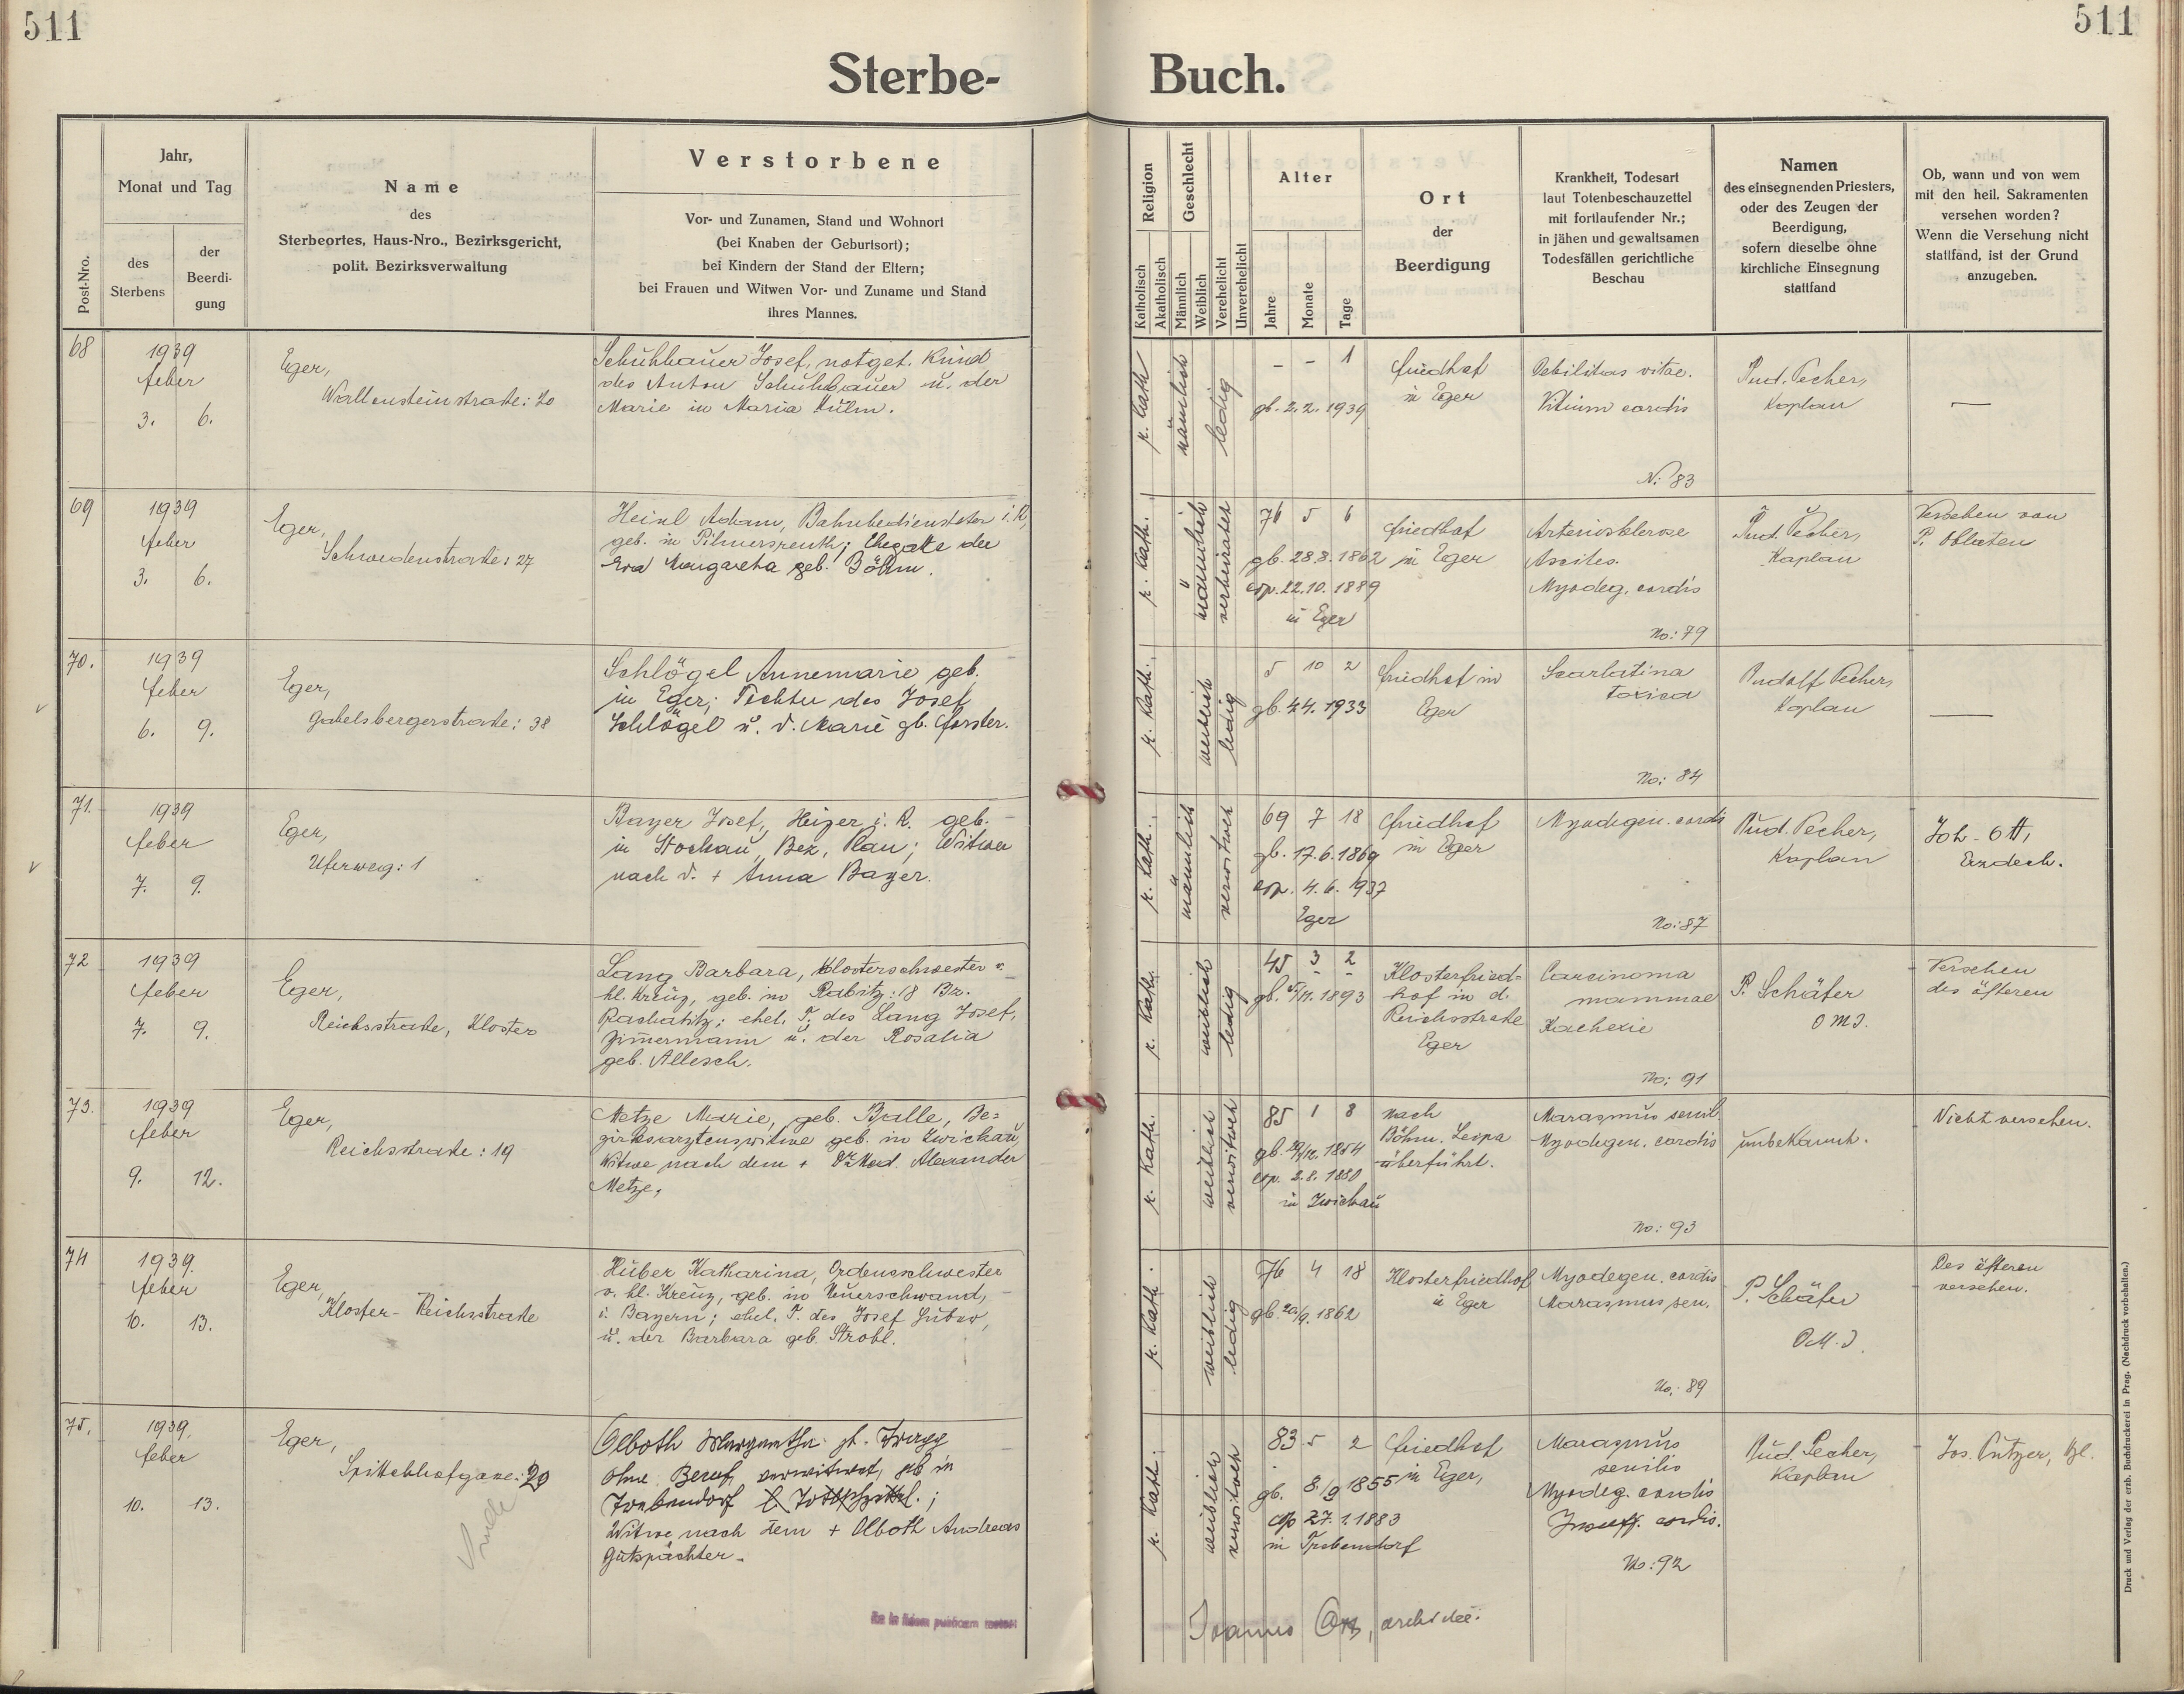 511
511
Sterbe-
Buch.
Post-Nro.
Jahr,
Monat und Tag
des
Sterbens
der
Beerdi-
gung
Name
des
Sterbeortes, Haus-Nro., Bezirksgericht,
polit. Bezirksverwaltung
Verstorbene
Vor- und Zunamen, Stand und Wohnort
(bei Knaben der Geburtsort);
bei Kindern der Stand der Eltern;
bei Frauen und Witwen Vor- und Zuname und Stand
ihres Mannes.
Religion
Katholisch
Akatholisch
Geschlecht
Männlich
Weiblich
Verehelicht
Unverehelicht
Alter
Jahre
Monate
Tage
Ort
der
Beerdigung
Krankheit, Todesart
laut Totenbeschauzettel
mit fortlaufender Nr.;
in jähen und gewaltsamen
Todesfällen gerichtliche
Beschau
Namen
des einsegnenden Priesters,
oder des Zeugen der
Beerdigung,
sofern dieselbe ohne
kirchliche Einsegnung
stattfand
Ob, wann und von wem
mit den heil. Sakramenten
versehen worden?
Wenn die Versehung nicht
stattfand, ist der Grund
anzugeben.
68
1939
feber
3. 6.
Eger,
Wallensteinstraße: 20
Schuhbauer Josef, notget. Kind
des Anton Schuhbauer u. der
Marie in Maria Kulm.
r. kath
männlich
ledig
- - 1
gb. 2.2. 1939
Friedhof
in Eger
Debilitas vitae.
Vitium cordis
N: 83
Rud. Pecher,
Kaplan
—
69
1939
feber
3. 6.
Eger,
Schwedenstraße: 27
Heinl Adam, Bahnbediensteter i. R,
geb. in Pilmersreuth; Ehegatte der
Eva Margareta geb. Böhm.
r. kath.
männlich
verheiratet
76 5 6
gb. 28.8. 1862
cop. 22.10. 1889
in Eger
Friedhof
in Eger
Arteriosklerose
Ascites.
Myodeg. cordis
No: 79
Rud. Pecher,
Kaplan
Versehen von
P. Oblaten
70.
1939
feber
6. 9.
Eger,
Gabelsbergerstraße: 38
Schlögel Annemarie geb.
in Eger; Tochter des Josef
Schlögel u. d. Marie gb. Forster.
r. kath.
weiblich
ledig
5 10 2
gb. 4.4. 1933
Friedhof in
Eger
Scarlatina
toxica
No: 84
Rudolf Pecher,
Kaplan
—
71.
1939
feber
7. 9.
Eger,
Uferweg: 1
Bayer Josef, Heizer i. R. geb.
in Stockau, Bez. Plan; Witwer
nach d. + Anna Bayer.
r. kath.
männlich
verwitwet
69 7 18
gb. 17.6. 1869
cop. 4. 6. 1937
Eger
Friedhof
in Eger
Myodegen. cordis
No: 87
Rud. Pecher,
Kaplan
Joh. Ott,
Erzdech.
72
1939
feber
7. 9.
Eger,
Reichsstraße, Kloster
Lang Barbara, Klosterschwester v.
hl. Kreuz, geb. in Rabitz: 18 Bz.
Rachatitz; ehel. T. des Lang Josef,
Zimermann u. der Rosalia
geb. Allesch.
r. kath.
weiblich
ledig
45 3 2
gb. 5/11. 1893
Klosterfried-
hof in d.
Reichsstraße
Eger
Carcinoma
mammae
Kachexie
No: 91
P. Schäfer
O M I.
Versehen
des öfteren
73.
1939
feber
9. 12.
Eger,
Reichsstraße: 19
Metze Marie, geb. Balle, Be-
zirksarztenswitwe geb. in Zwickau,
Witwe nach dem + Dr. Med. Alexander
Metze.
r. kath.
weiblich
verwitwet
85 1 8
1854
cop. 2.8. 1880
in Zwickau
nach
Böhm. Leipa
überführt.
Marasmus senil
Myodegen. cordis
No: 93
unbekannt.
Nicht versehen.
74
1939.
feber
10. 13.
Eger,
Kloster- Reichsstraße
Huber Katharina, Ordensschwester
v. hl. Kreuz, geb. in Neuerschwand,
i. Bayern; ehel. T. des Josef Huber,
u. der Barbara geb. Strobl.
r. kath.
weiblich
ledig
76 4 18
gb. 20/9. 1862
Klosterfriedhof
in Eger
Myodegen. cordis
Marasmus sen.
No: 89
P. Schäfer
O M. I.
Des öfteren
versehen.
75.
1939.
feber
10. 13.
Eger,
Spittelhofgasse: 29
Olboth Margaretha gb. Tragg
ohne Beruf, verwitwet, gb in
Trebendorf
Witwe nach dem + Olboth Andreas
Gutspächter.
r. kath.
weiblich
verwitwet
83 5 2
gb. 8/9 1855
cop 27. 1. 1883
in Trebendorf
Friedhof
in Eger,
Marasmus
senilis
Myodeg. cordis
Insuff. cordis.
No: 92
Rud. Pecher,
Kaplan
Jos. Putzer, Kpl.
Joannes Ott, archidec.
Druck und Verlag der erzb. Buchdruckerei in Prag. (Nachdruck vorbehalten.)